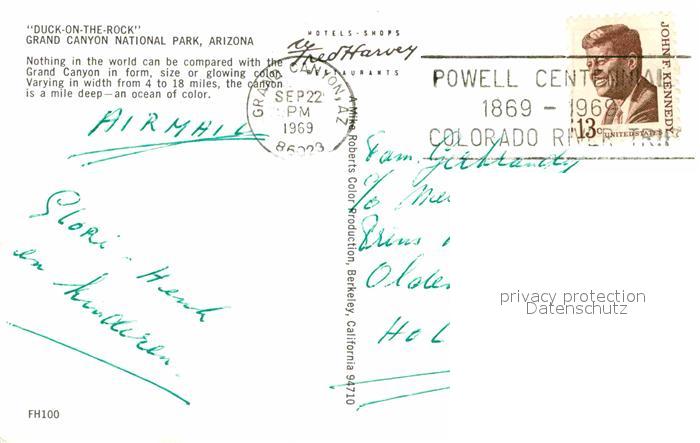 "DUCK-ON-THE-ROCK"
GRAND CANYON NATIONAL PARK, ARIZONA
Nothing in the world can be compared with the
Grand Canyon in form, size or glowing color.
Varying in width from 4 to 18 miles, the canyon
is a mile deep—an ocean of color.
HOTELS-SHOPS
Fred Harvey
RESTAURANTS
GRAND CANYON, AZ
SEP 22
PM
1969
86023
POWELL CENTENNIAL
1869 - 1969
COLORADO RIVER TRIP
JOHN F. KENNEDY
13c UNITED STATES
AIRMAIL
Glori - Henk
en kinderen.
A Mike Roberts Color Production, Berkeley, California 94710
Fam. Gerbrandy
c/o
Prins
Olde
Hol
privacy protection
Datenschutz
FH100